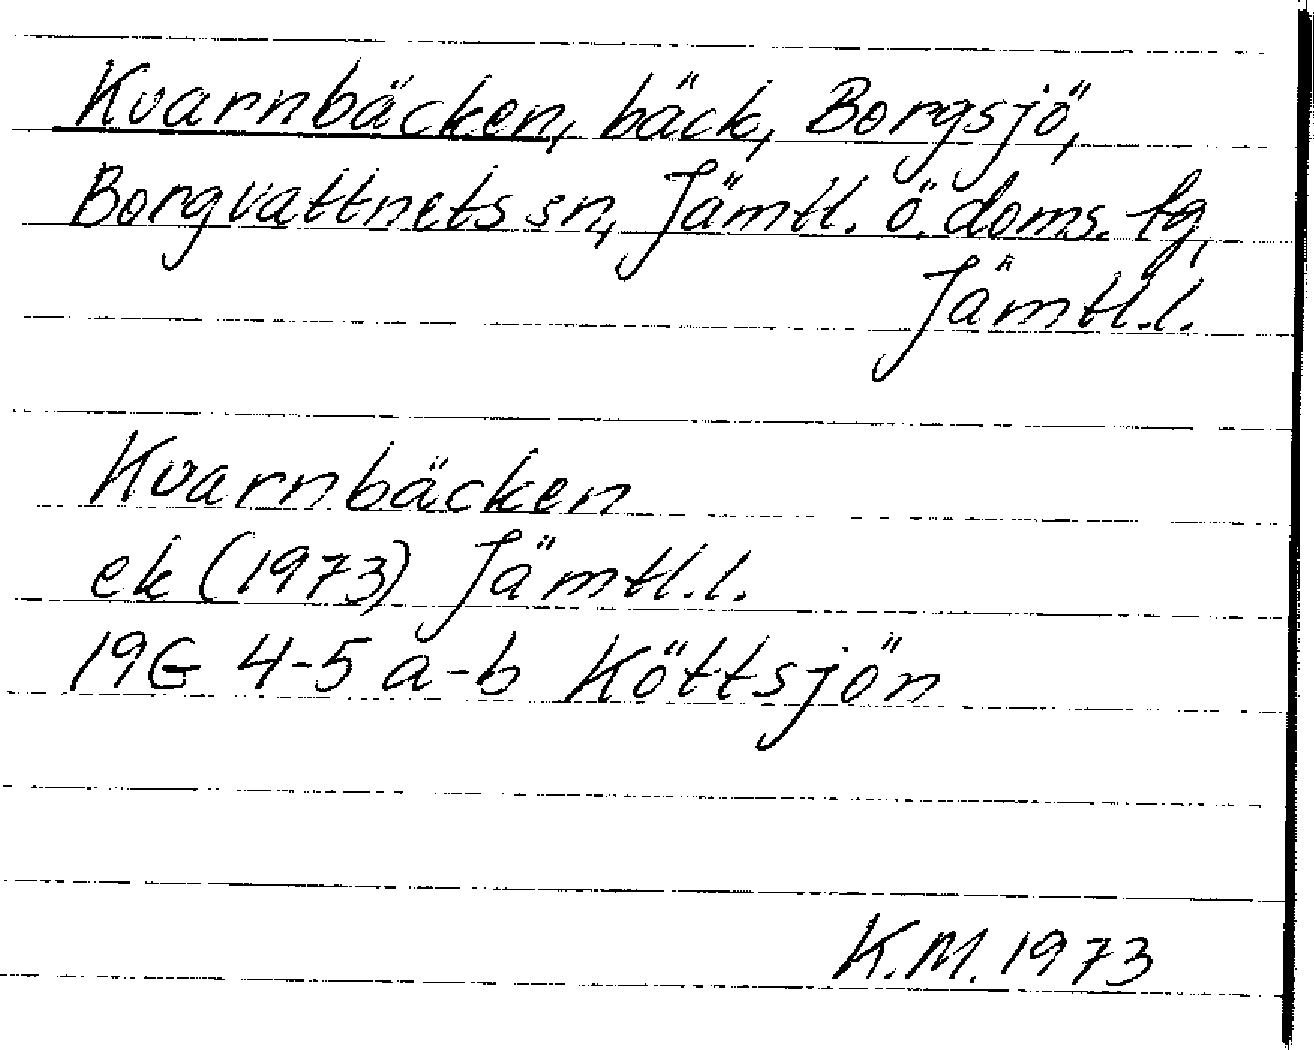 Kvarnbäcken, bäck, Borgsjö,
Borgvattnets sn, Jämtl. ö. doms. tg,
Jämtl.l.
Kvarnbäcken
ek (1973) Jämtl.l.
19G 4-5 a-b Köttsjön
K.M. 1973